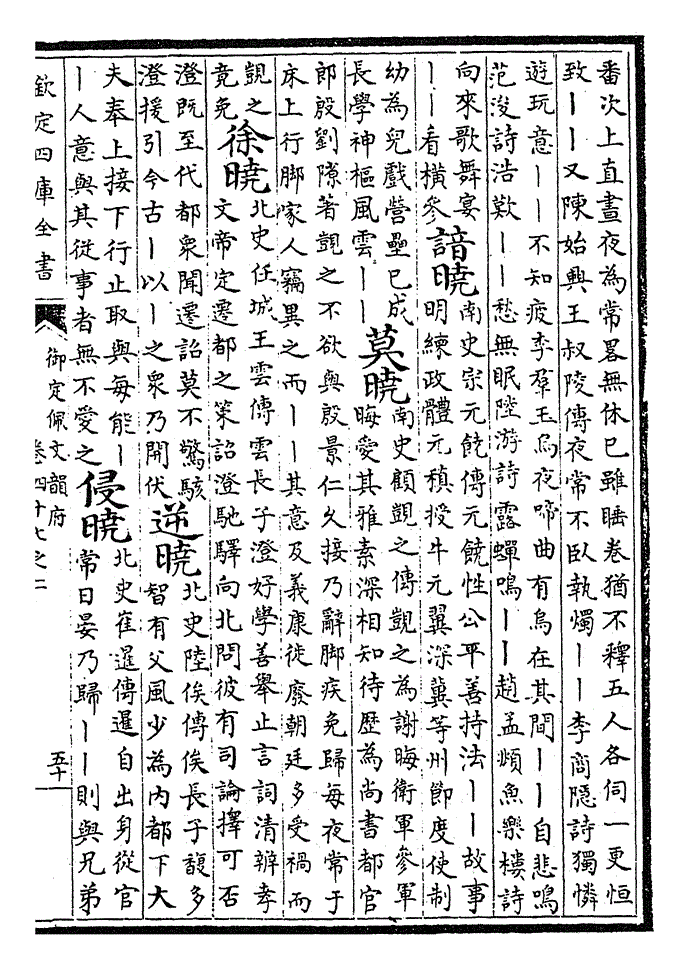 番次上直晝夜為常畧無休已雖睡卷猶不釋五人各伺一更恒
致丨丨又陳始興王叔陵傳夜常不臥執燭丨丨李商隱詩獨憐
遊玩意丨丨不知疲李羣玉烏夜啼曲有烏在其間丨丨自悲鳴
范浚詩浩歎丨丨愁無眠陸游詩露蟬鳴丨丨趙孟頫魚樂樓詩
向來歌舞宴
丨丨看橫參
諳曉
南史宗元饒傳元饒性公平善持法丨丨故事
明練政體元稹授牛元翼深冀等州節度使制
幼為兒戲營壘已成
長學神樞風雲丨丨
莫曉
南史顧覬之傳覬之為謝晦衛軍參軍
晦愛其雅素深相知待歷為尚書都官
郎殷劉隙著覬之不欲與殷景仁久接乃辭脚疾免歸每夜常于
床上行脚家人竊異之而丨丨其意及義康徙廢朝廷多受禍而
覬之
竟免
徐曉
北史任城王雲傳雲長子澄好學善舉止言詞清辨孝
文帝定遷都之策詔澄馳驛向北問彼有司論擇可否
澄既至代都衆聞遷詔莫不驚駭
澄援引今古丨以丨之衆乃開伏
逆曉
北史陸俟傳俟長子馥多
智有父風少為內都下大
夫奉上接下行止取與每能丨
丨人意與其從事者無不愛之
侵曉
北史崔暹傳暹自出身從官
常日晏乃歸丨丨則與兄弟
欽定四庫全書
御定佩文韻府
卷四十七之二
五十